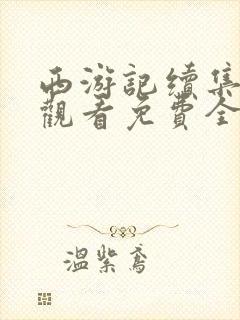 西游記續集
觀看免費全
溫紫鳶